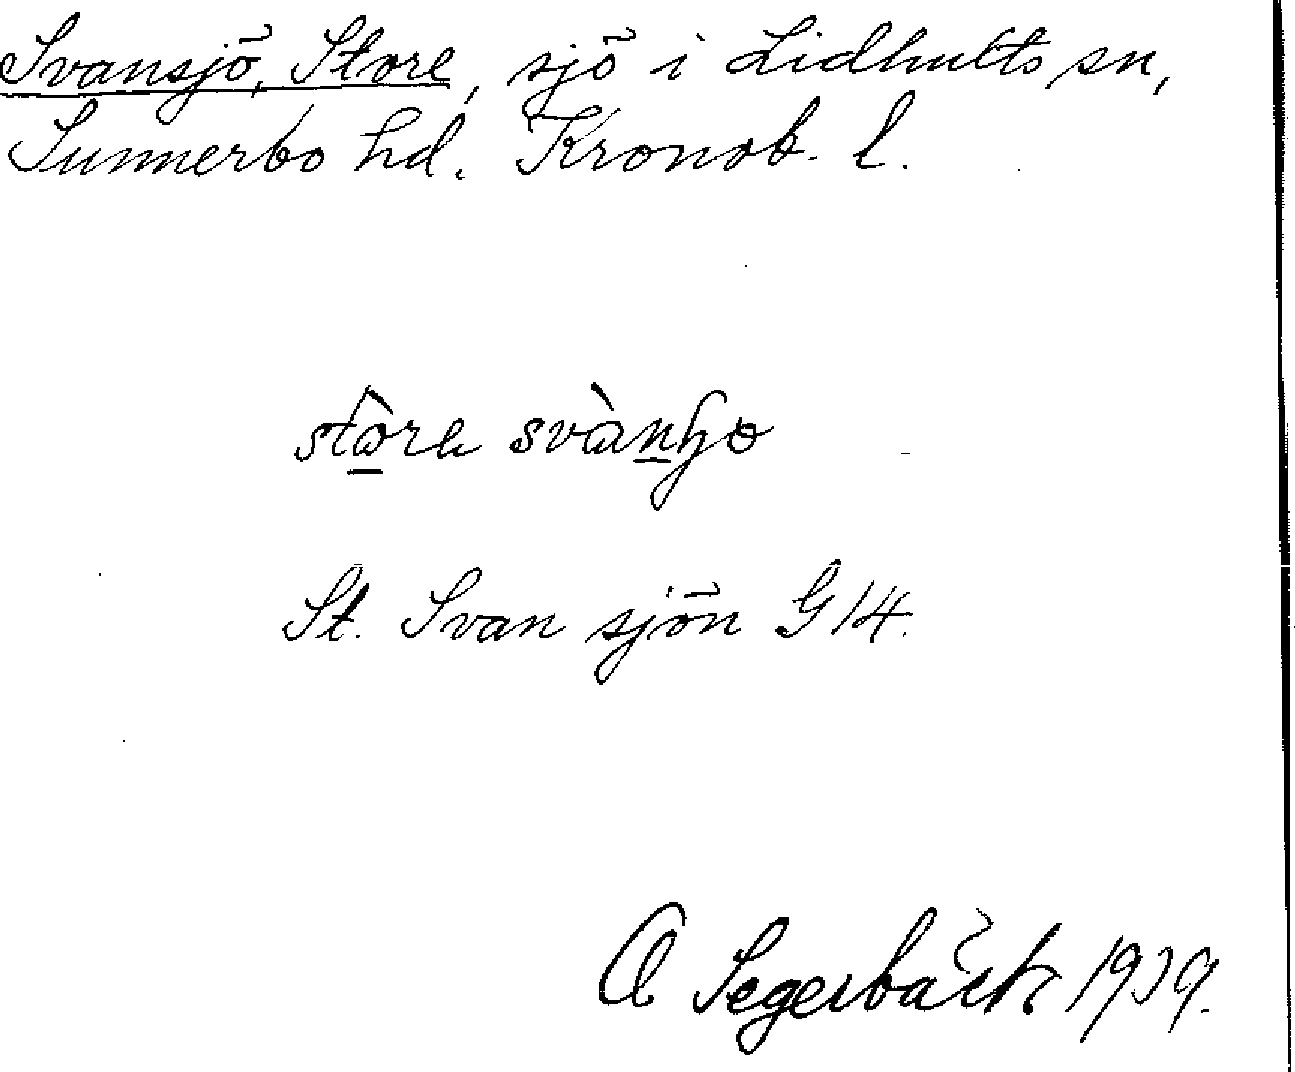 Svansjö, Store, sjö i Lidhults sn,
Sunnerbo hd. Kronob. l.
St. Svan sjön G 14.
A Segerbäck 1939.